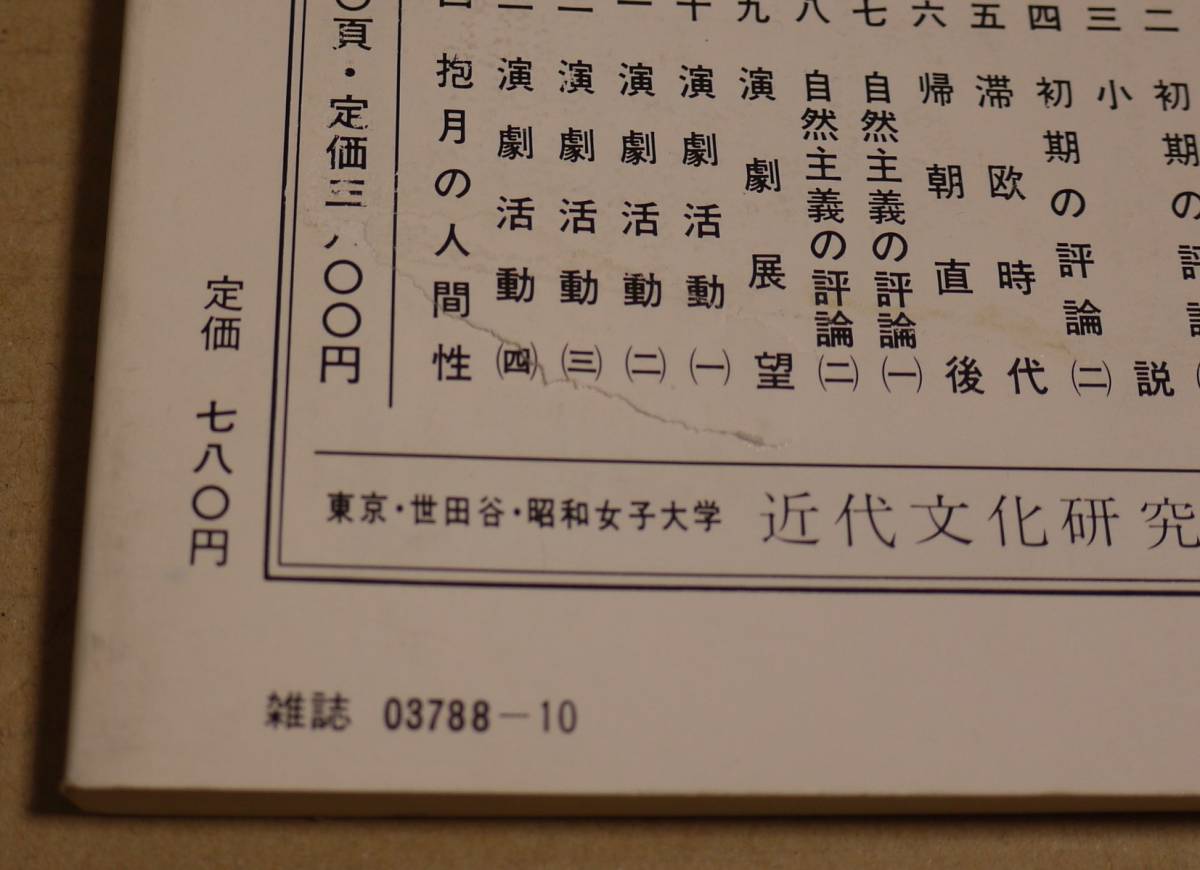 二 初期の評
三 小 説
四 初期の評論 (二)
五 滞欧時代
六 帰朝直後
七 自然主義の評論 (一)
八 自然主義の評論 (二)
九 演劇展望
十 演劇活動 (一)
演劇活動 (二)
演劇活動 (三)
演劇活動 (四)
抱月の人間性
〇頁・定価三八〇〇円
東京・世田谷・昭和女子大学 近代文化研究
定価 七八〇円
雑誌 03788-10